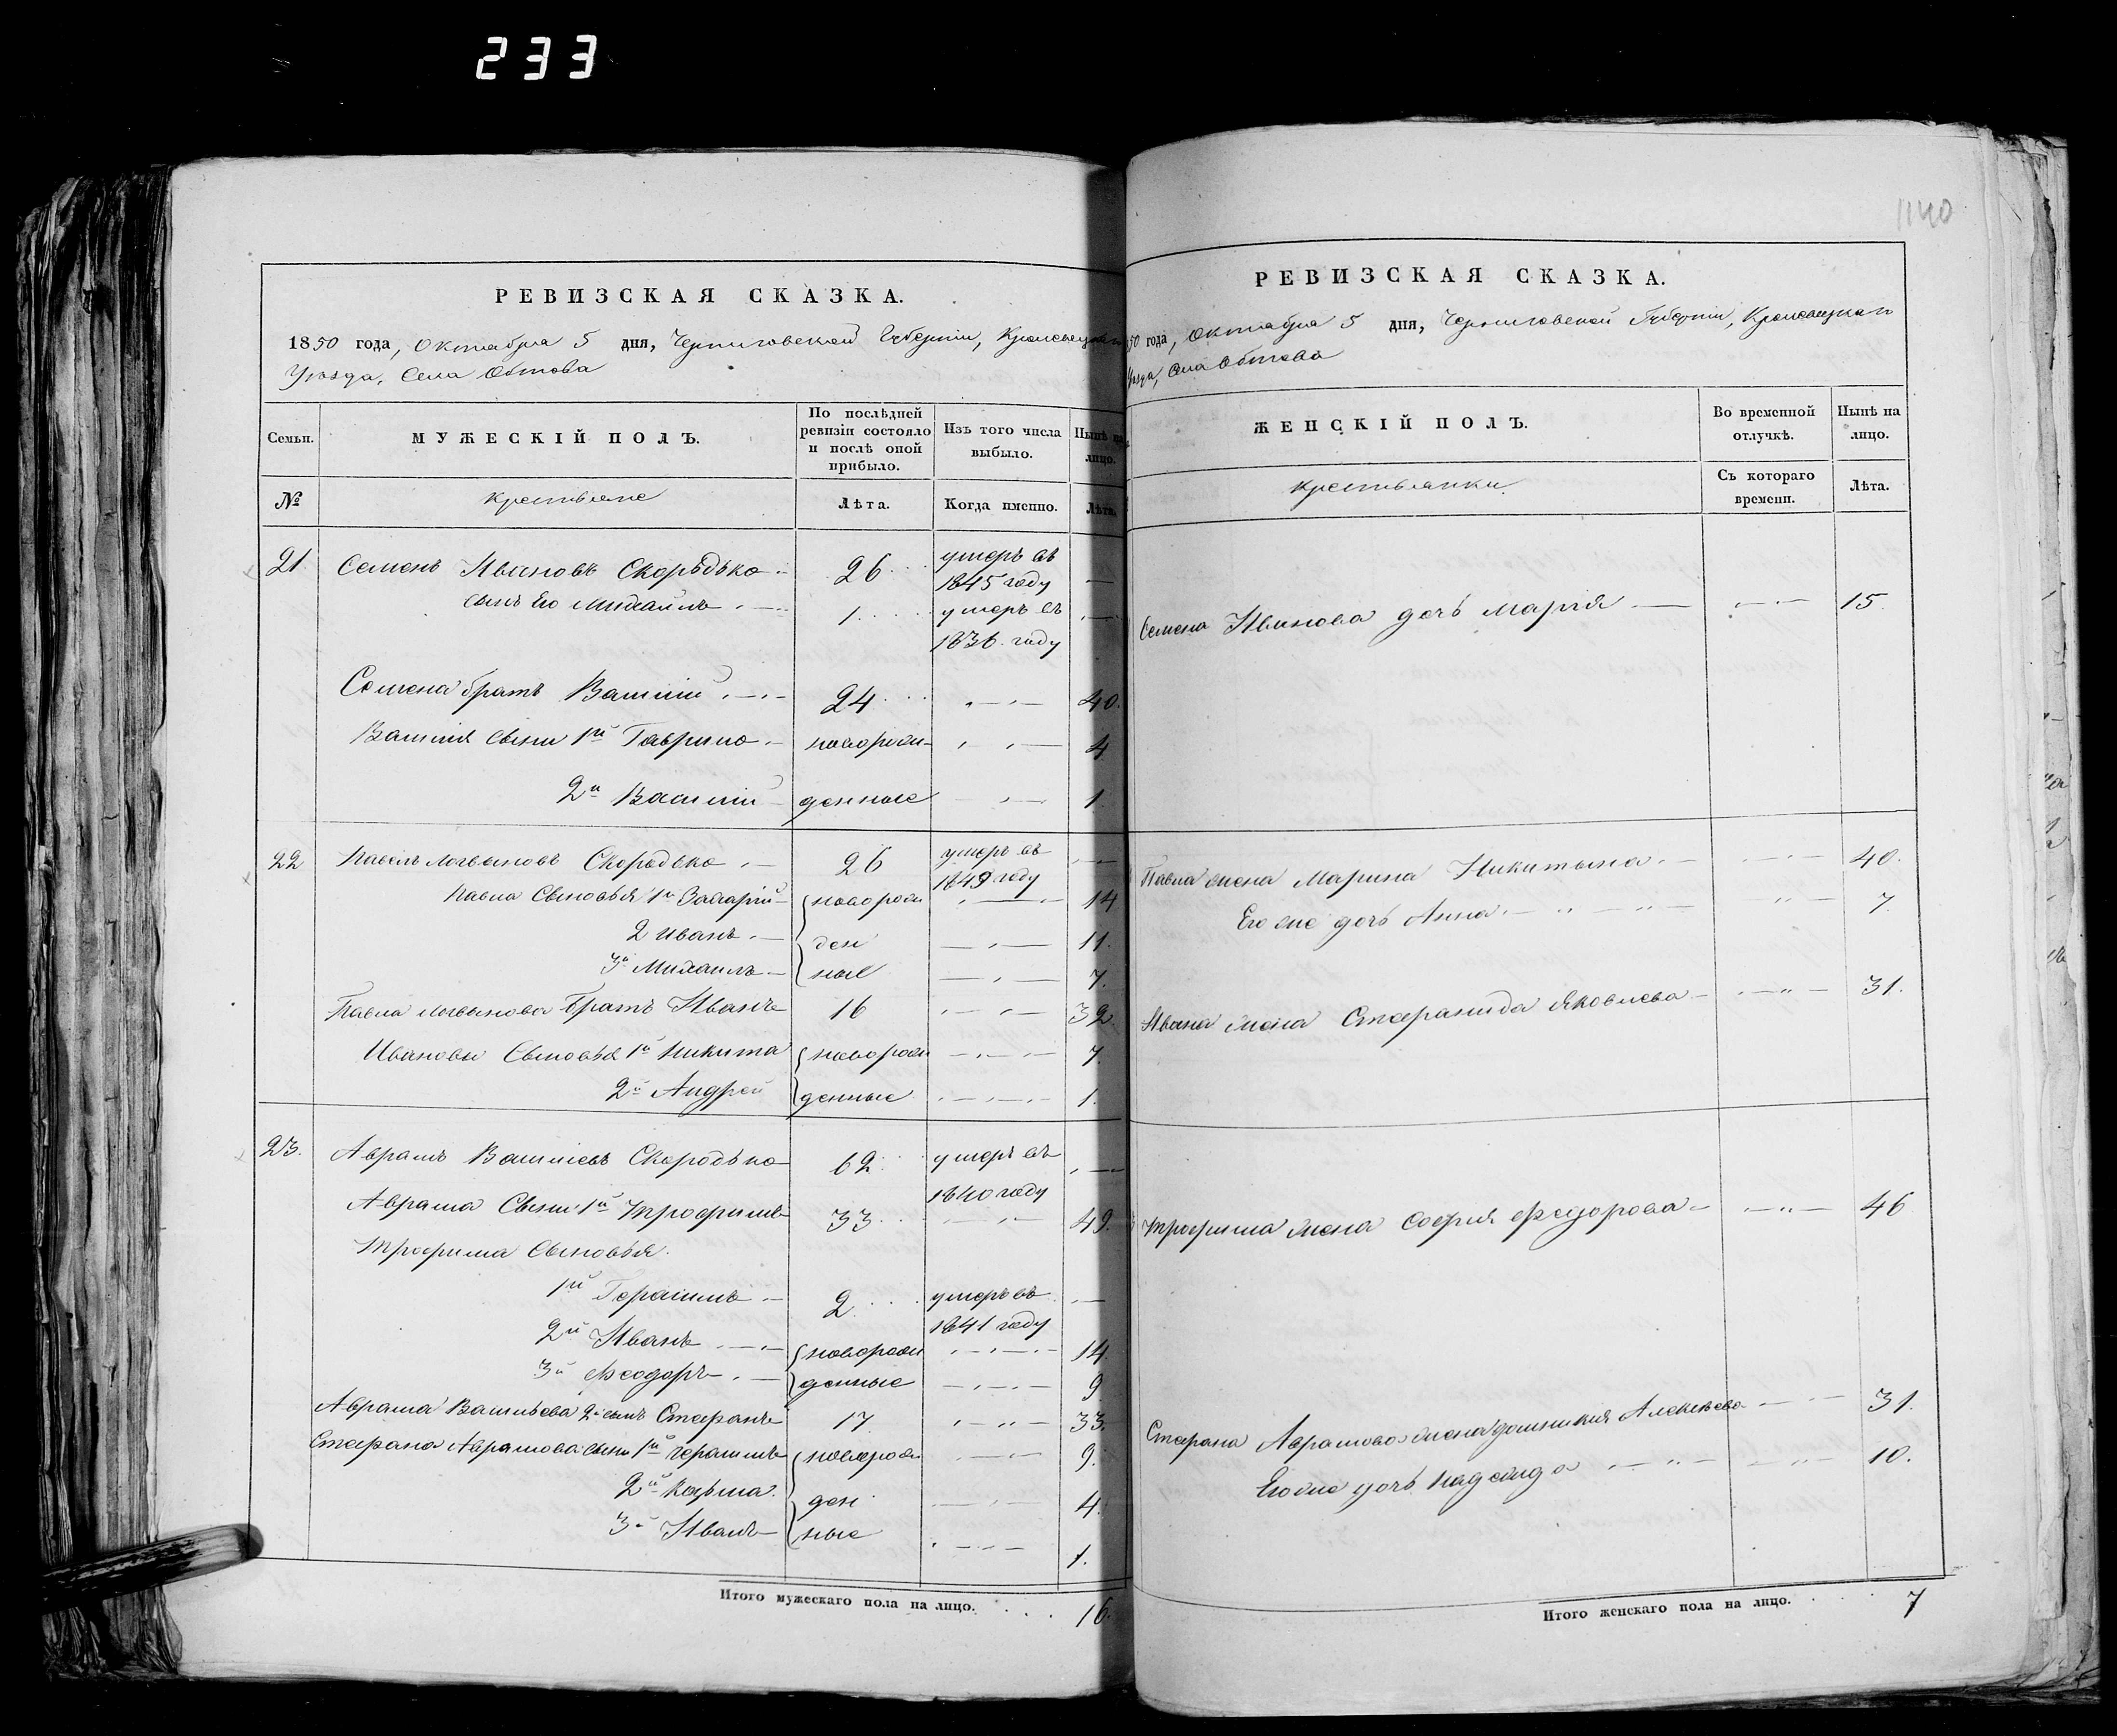 233
1140
РЕВИЗСКАЯ СКАЗКА.
1850 года, Октября 5 дня, Черниговской Губерніи, Кролевецкаго
Уѣзда, Села Обтова
Семьи. МУЖЕСКІЙ ПОЛЪ. По послѣдней ревизіи состояло и послѣ оной прибыло. Изъ того числа выбыло. Нынѣ на лицо.
№ Крестьяне Лѣта. Когда именно. Лѣта.
21 Семенъ Ивановъ Скородько 26 умеръ въ 1845 году —
сынъ Его Михаилъ 1 умеръ въ 1836 году —
Семена братъ Василій 24 40.
Василія Сыны 1й Гаврило новорож- 4
2й Василій денные 1.
22 Павелъ Логвиновъ Скородько 26 умеръ въ 1849 году
Павла Сыновья 1й Захарій новорож 14
2 Иванъ ден 11.
3й Михаилъ ные 7.
Павла Логвинова Братъ Иванъ 16 32.
Ивановы Сыновья 1й Никита новорож 7.
2й Андрей денные 1.
23. Аврамъ Василіевъ Скородько 62 умеръ въ 1840 году
Аврама Сыны 1й Трофимъ 33 49.
Трофима Сыновья
1й Герасимъ 2 умеръ въ 1841 году —
2й Иванъ новорож 14
3й Феодоръ денные 9
Аврама Васильева 2й сынъ Стефанъ 17 33.
Стефана Аврамова сыны 1й Герасимъ новорож 9.
2й Козьма ден 4.
3й Иванъ ные 1.
Итого мужескаго пола на лицо. 16.
РЕВИЗСКАЯ СКАЗКА.
50 года, Октября 5 дня, Черниговской Губерніи, Кролевецкаго
Уѣзда, Села Обтова
ЖЕНСКІЙ ПОЛЪ. Во временной отлучкѣ. Нынѣ на лицо.
Крестьянки. Съ котораго времени. Лѣта.
Семена Иванова дочь Марія 15.
Павла жена Марина Никитина 40.
Его же дочь Анна 7.
Ивана жена Стефанида Яковлева 31.
Трофима жена Софія Федорова 46
Стефана Аврамова жена Домникия Алексѣева 31.
Его же дочь Надежда 10.
Итого женскаго пола на лицо. 7